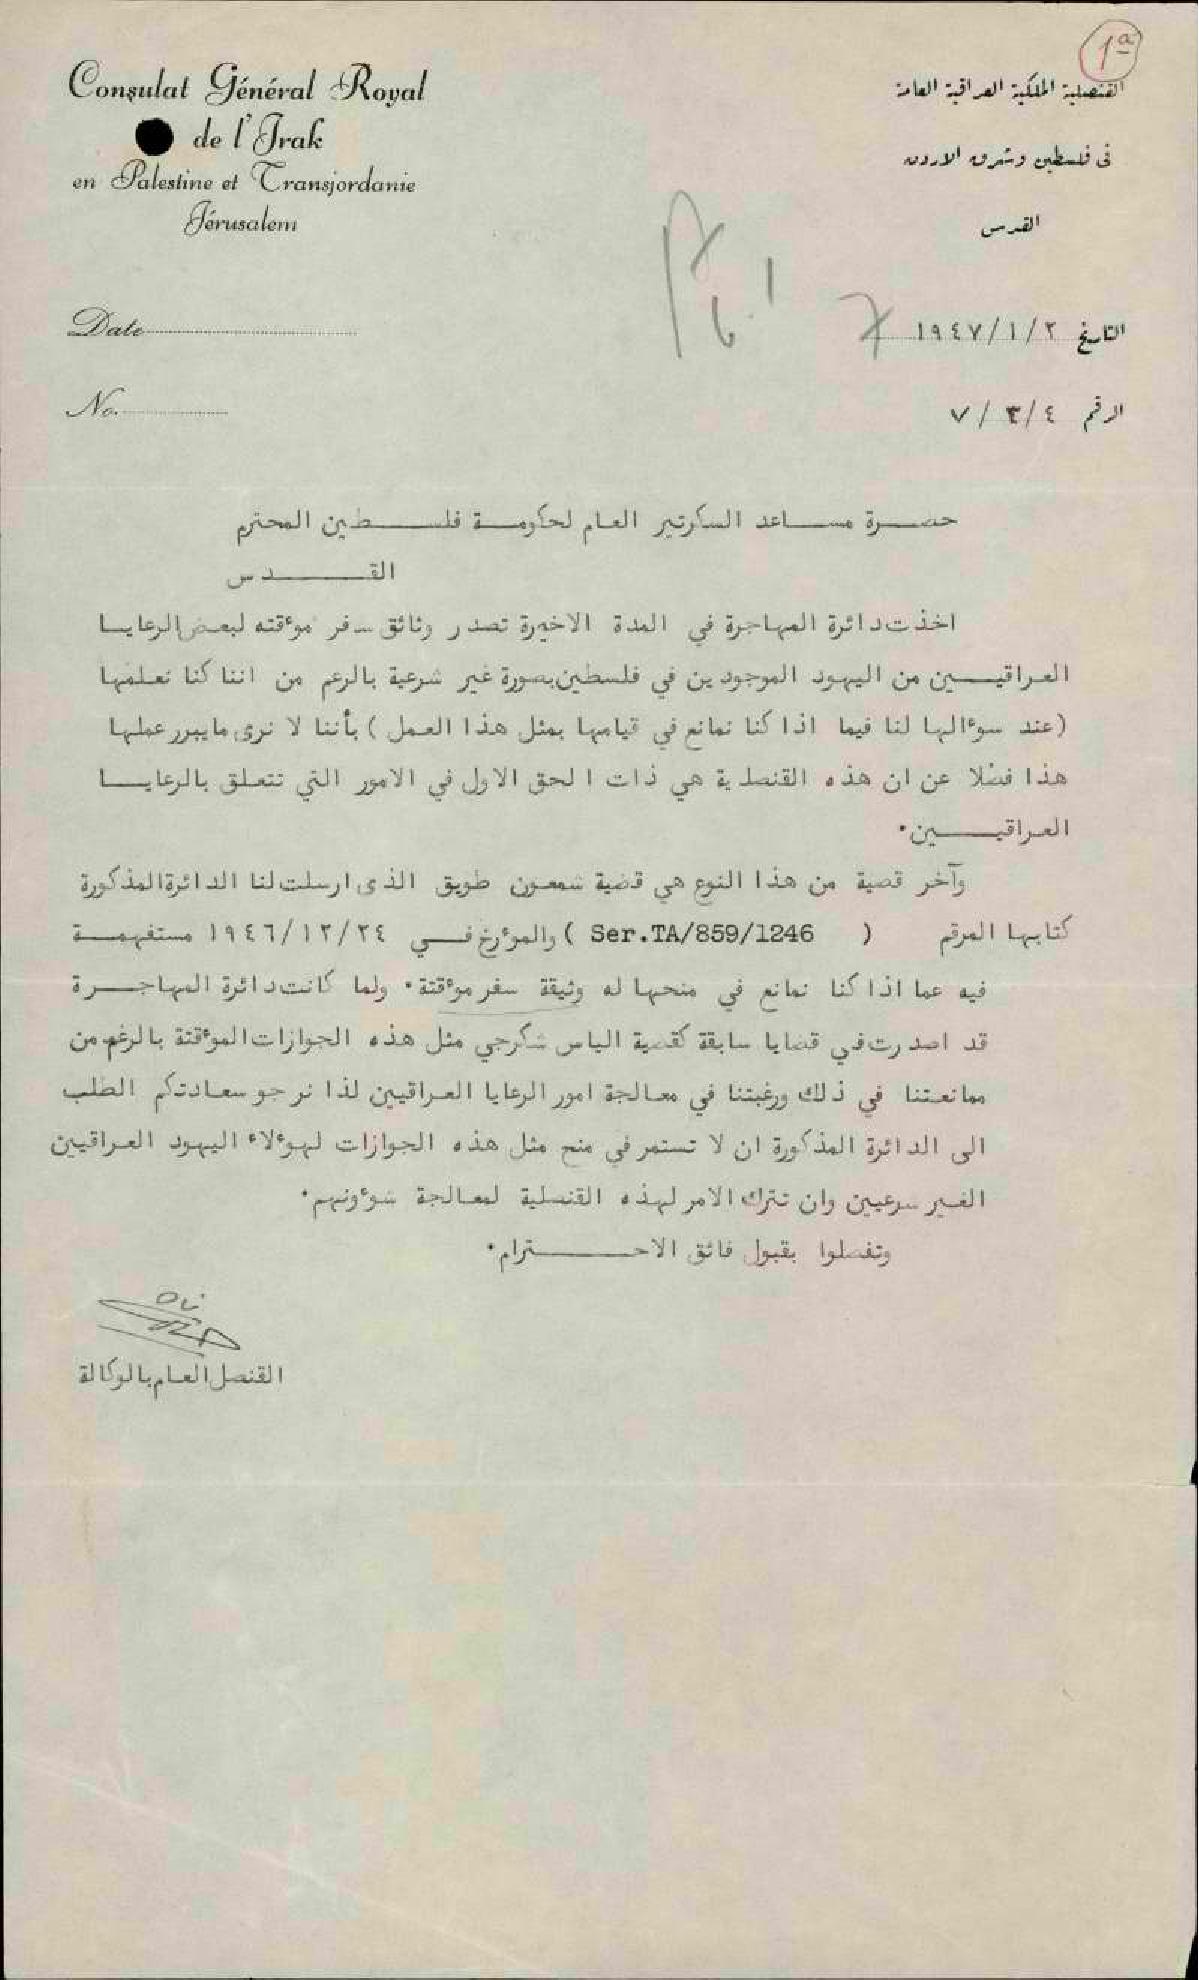 1a
Consulat Général Royal
de l'Irak
en Palestine et Transjordanie
Jérusalem
القنصلية الملكية العراقية العامة
في فلسطين وشرق الاردن
القدس
Date
No.
التاريخ ٢/١/١٩٤٧
الرقم ٤/٣/٧
حضرة مساعد السكرتير العام لحكومة فلسطين المحترم
القدس
اخذت دائرة المهاجرة في المدة الاخيرة تصدر وثائق سفر موءقته لبعض الرعايا
العراقيين من اليهود الموجودين في فلسطين بصورة غير شرعية بالرغم من اننا كنا نعلمها
(عند سوءالها لنا فيما اذا كنا نمانع في قيامها بمثل هذا العمل) بأننا لا نرى مايبرر عملها
هذا فضلا عن ان هذه القنصلية هي ذات الحق الاول في الامور التي تتعلق بالرعايا
العراقيين.
وآخر قضية من هذا النوع هي قضية شمعون طويق الذى ارسلت لنا الدائرة المذكورة
كتابها المرقم ( Ser.TA/859/1246 ) والموءرخ في ٢٤/١٢/١٩٤٦ مستفهمة
فيه عما اذا كنا نمانع في منحها له وثيقة سفر موءقتة. ولما كانت دائرة المهاجرة
قد اصدرت في قضايا سابقة كقضية الياس شكرجي مثل هذه الجوازات الموءقتة بالرغم من
ممانعتنا في ذلك ورغبتنا في معالجة امور الرعايا العراقيين لذا نرجو سعادتكم الطلب
الى الدائرة المذكورة ان لا تستمر في منح مثل هذه الجوازات لهوءلاء اليهود العراقيين
الغير شرعيين وان تترك الامر لهذه القنصلية لمعالجة شوءونهم.
وتفضلوا بقبول فائق الاحترام.
القنصل العام بالوكالة